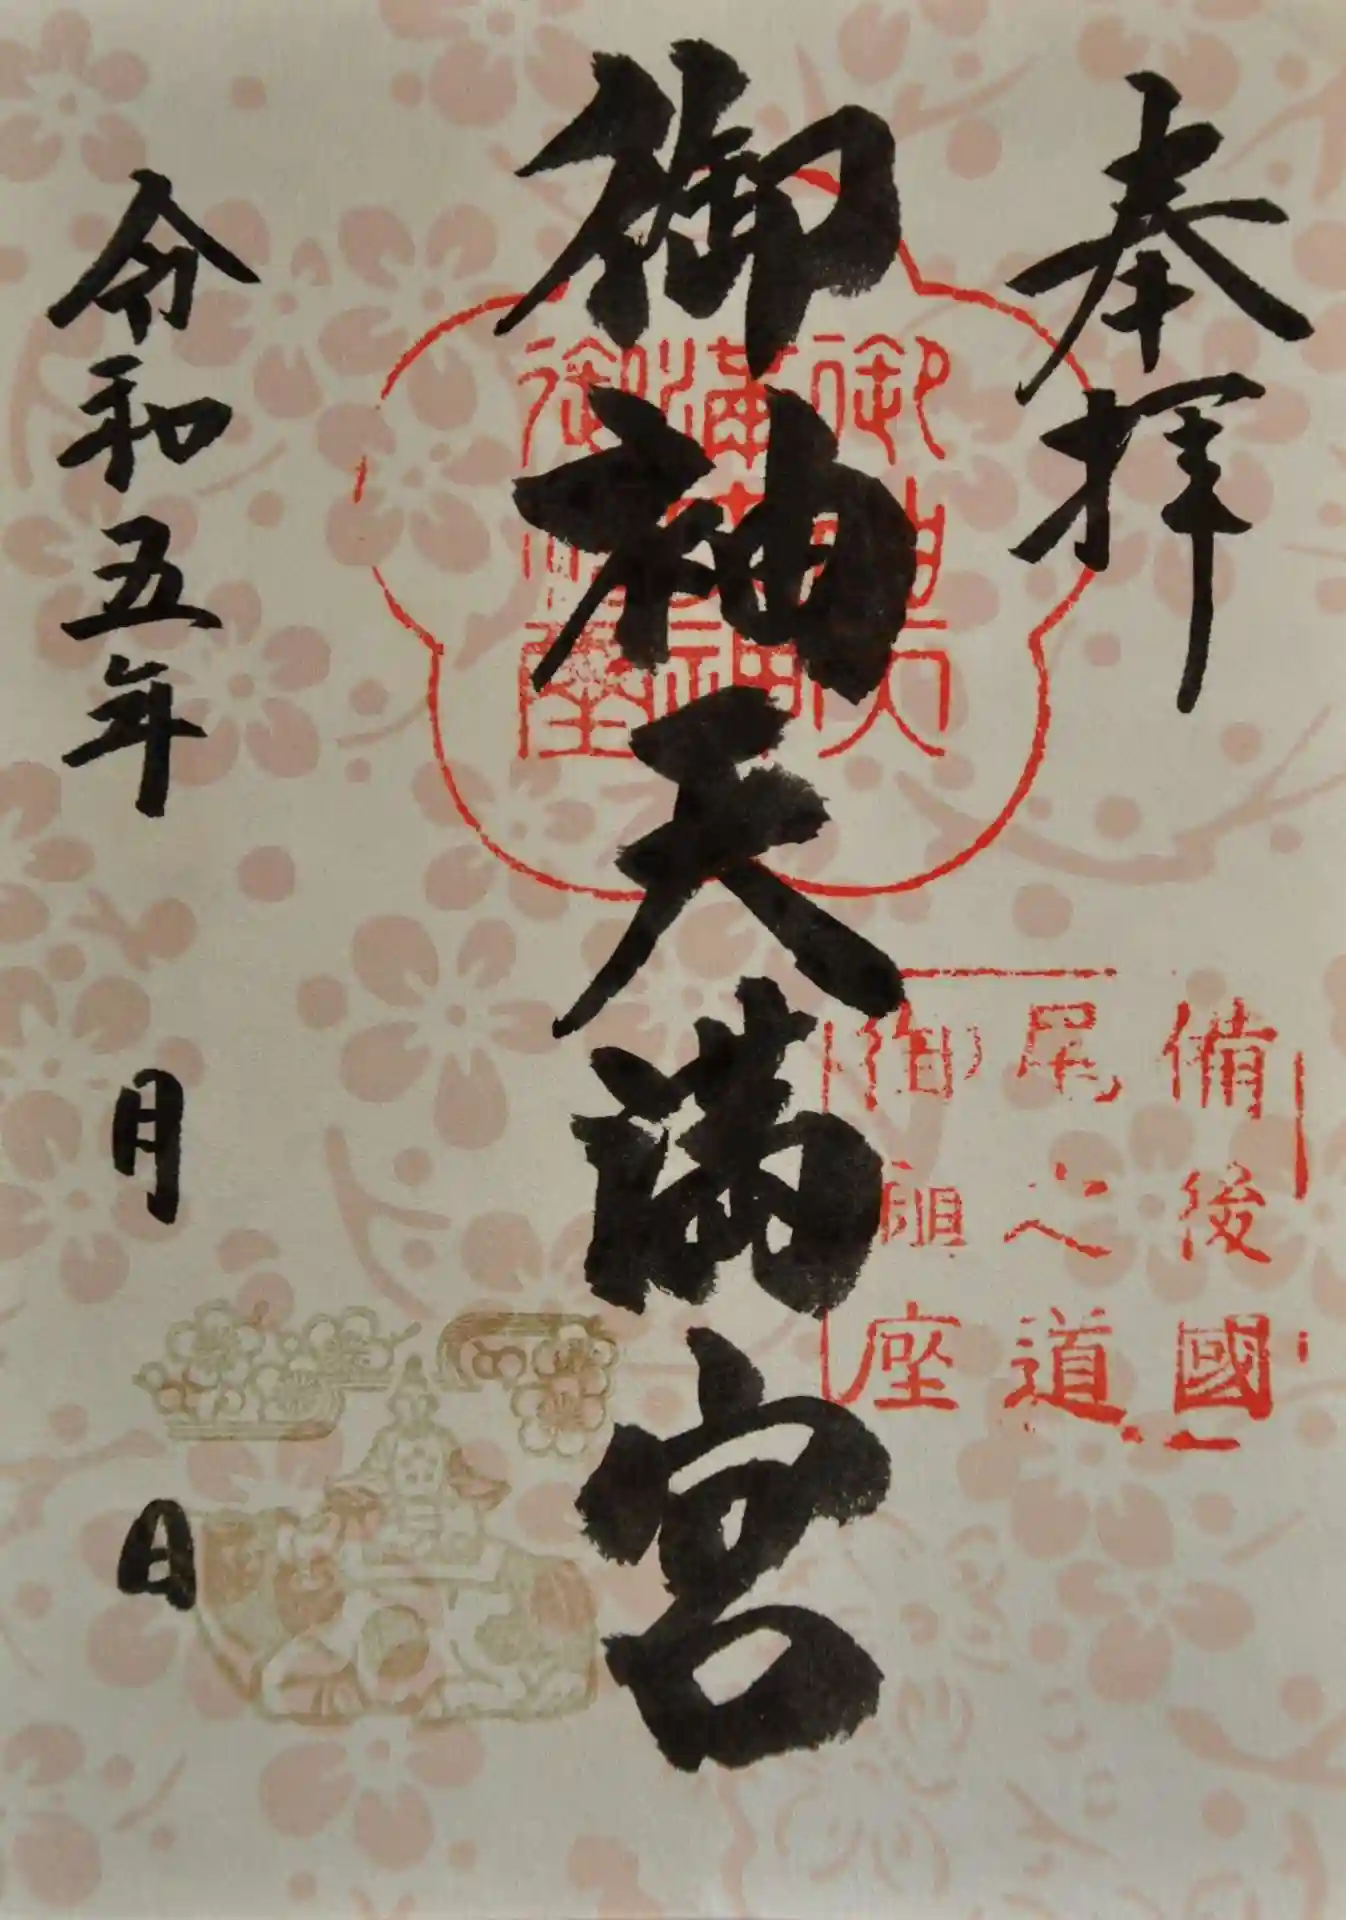 奉拝
御袖天満宮
令和五年 月 日
御袖天
満宮神
備後國
尾之道